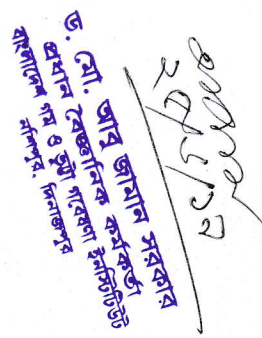 ড. মো. আবু জামান সরকার
প্রধান বৈজ্ঞানিক কর্মকর্তা
বাংলাদেশ গম ও ভুট্টা গবেষণা ইনস্টিটিউট
নশিপুর, দিনাজপুর